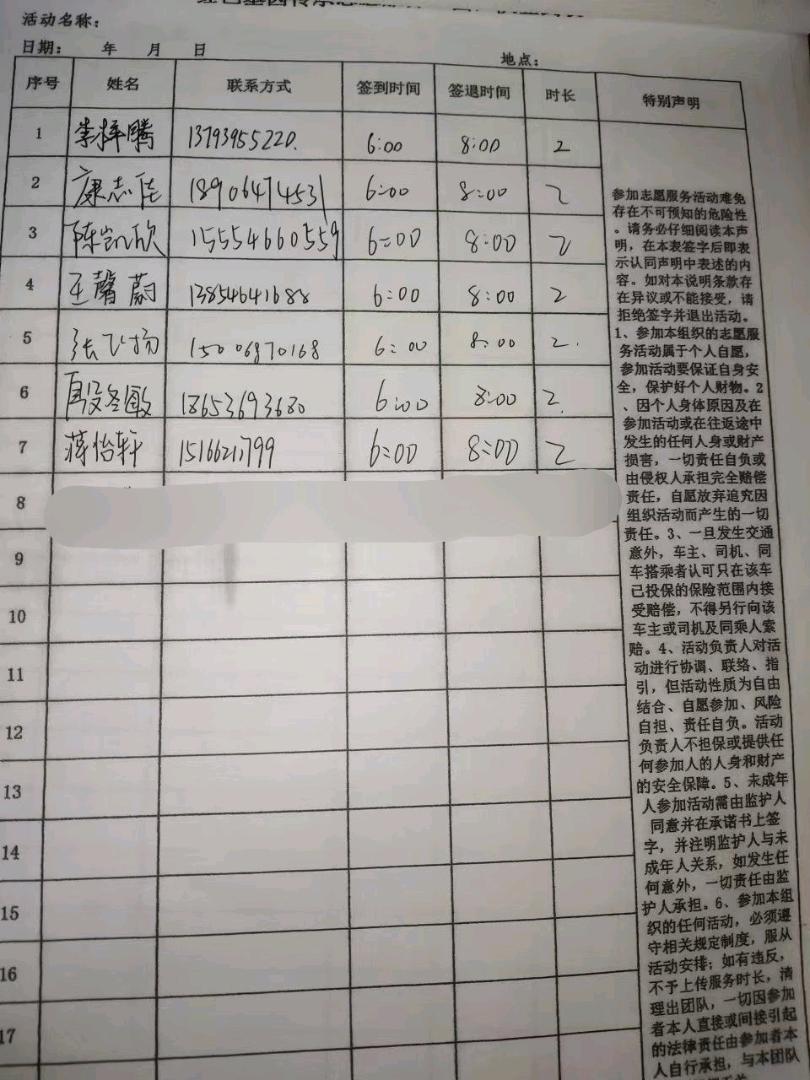 活动名称：
日期： 年 月 日 地点：
序号 姓名 联系方式 签到时间 签退时间 时长 特别声明
1 李梓腾 13793955220. 6:00 8:00 2
2 康志佳 18906474531 6:00 8:00 2
3 陈凯欣 15554660559 6:00 8:00 2
4 王馨蔚 13854641688 6:00 8:00 2
5 张飞扬 15006870168 6:00 8:00 2.
6 18653693680 6:00 8:00 2.
7 蒋怡轩 15166211799 6:00 8:00 2
8
9
10
11
12
13
14
15
16
17
参加志愿服务活动难免
存在不可预知的危险性
。请务必仔细阅读本声
明，在本表签字后即表
示认同声明中表述的内
容。如对本说明条款存
在异议或不能接受，请
拒绝签字并退出活动。
1、参加本组织的志愿服
务活动属于个人自愿，
参加活动要保证自身安
全，保护好个人财物。2
、因个人身体原因及在
参加活动或在往返途中
发生的任何人身或财产
损害，一切责任自负或
由侵权人承担完全赔偿
责任，自愿放弃追究因
组织活动而产生的一切
责任。3、一旦发生交通
意外，车主、司机、同
车搭乘者认可只在该车
已投保的保险范围内接
受赔偿，不得另行向该
车主或司机及同乘人索
赔。4、活动负责人对活
动进行协调、联络、指
引，但活动性质为自由
结合、自愿参加、风险
自担、责任自负。活动
负责人不担保或提供任
何参加人的人身和财产
的安全保障。5、未成年
人参加活动需由监护人
同意并在承诺书上签
字，并注明监护人与未
成年人关系，如发生任
何意外，一切责任由监
护人承担。6、参加本组
织的任何活动，必须遵
守相关规定制度，服从
活动安排；如有违反，
不予上传服务时长，清
理出团队，一切因参加
者本人直接或间接引起
的法律责任由参加者本
人自行承担，与本团队